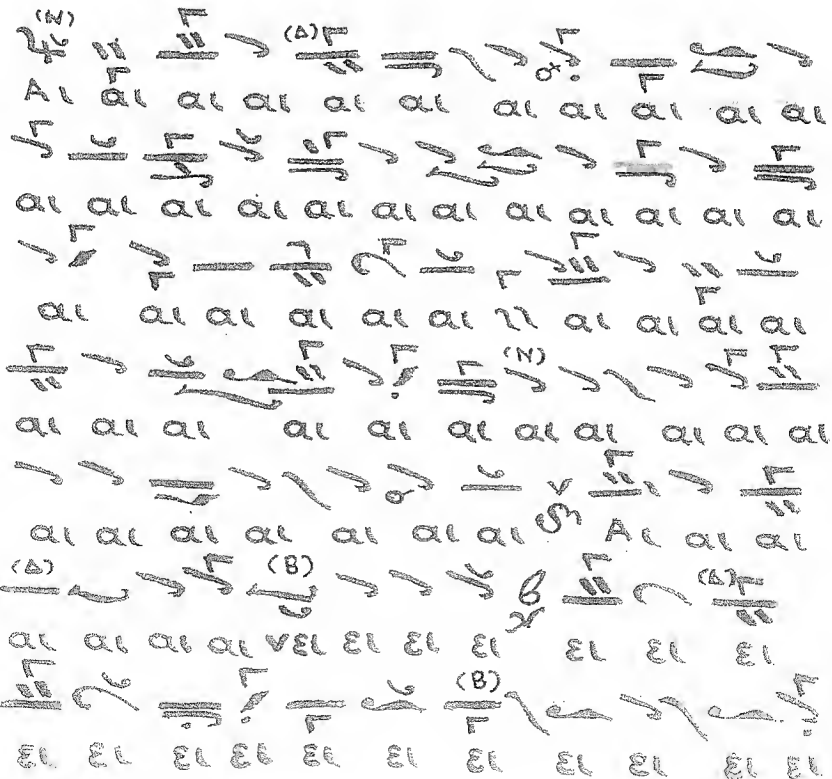 (Ν) (Δ)
Αι αι αι αι αι αι αι αι αι αι αι
αι αι αι αι αι αι αι αι αι αι αι αι
αι αι αι αι αι αι αι αι αι αι
(Ν)
αι αι αι αι αι αι αι αι αι αι αι
αι αι αι αι αι αι αι Αι αι αι
(Δ) (Β) (Δ)
αι αι αι αι νει ει ει ει ει ει ει
(Β)
ει ει ει ει ει ει ει ει ει ει ει